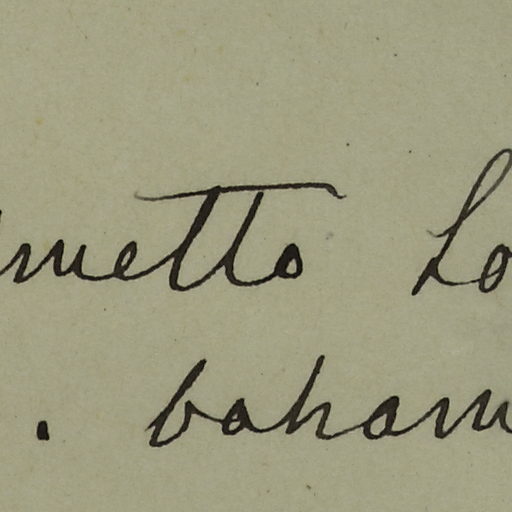 metto Lo
. baham